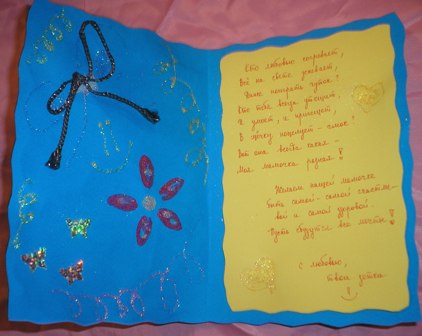 Кто любовью согревает,
Всё на свете успевает,
Даже поиграть чуток?
Кто тебя всегда утешит,
И умоет, и причешет,
В щёчку поцелует – чмок?
Вот она всегда какая –
Моя мамочка родная!!
Желаем нашей мамочке
быть самой-самой счастли-
вой и самой здоровой.
Пусть сбудутся все мечты!
С любовью,
твои детки